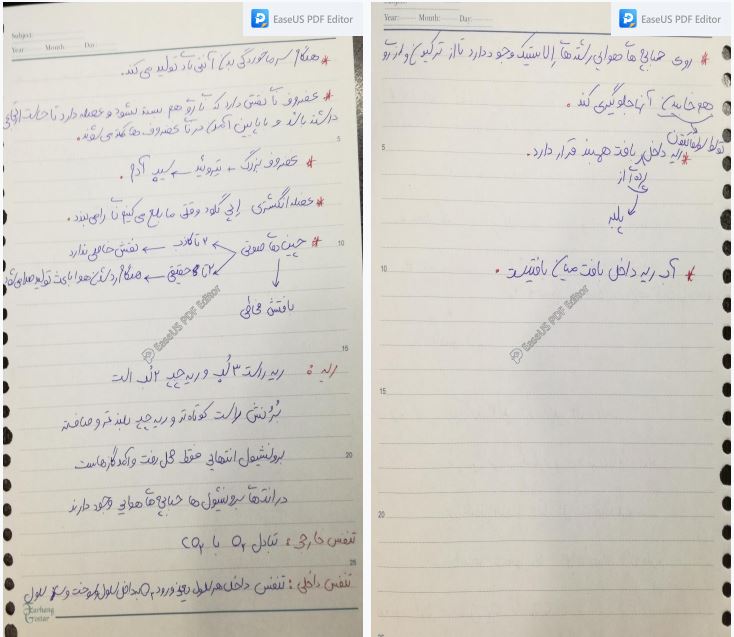 EaseUS PDF Editor
Subject:
Year: Month: Day:
* هنگام سرماخوردگی بدن آنتی بادی تولید می کند.
* غضروف نا نقشی دارد که نا رو هم بسته نشود و عضله دارد تا حالت ارتجاعی
داشته باشد و با پایین آمدن غضروف ها می شوند.
5
* غضروف بزرگ ← تیروئید ← سیب آدم.
* عضله انگشتری اپی گلوت وقتی ما بلع می کنیم نا را می بندد.
10
* چین های صوتی
2 تا کاذب ← نقش خاصی ندارد
2 تا حقیقی ← هنگام رد شدن هوا باعث تولید صدا می شود
بافتش مخاطی
EaseUS PDF Editor
15
ریه: ریه راست ۳ لُب و ریه چپ ۲ لُب است
بُرُنش راست کوتاه تر و ریه چپ بلندتر و
20
برونشیول انتهایی فقط محل رفت و آمد گازهاست
در انتهای برونشیول ها حبابچه های هوایی وجود دارند
تنفس خارجی: تبادل O₂ با CO₂
25
تنفس داخلی: تنفس داخل هر سلول یعنی ورود O₂ به داخل سلول و سوخت و ساز سلول
Farhang
Gostar
EaseUS PDF Editor
Year: Month: Day:
* روی حبابچه های هوایی رشته های الاستیک وجود دارد تا از ترکیدن و از رو
هم خوابیدن آنها جلوگیری کند.
5
* ریه داخل بافت همبند قرار دارد.
پلور
10
* آب ریه داخل بافت میان بافتیست.
EaseUS PDF Editor
15
20